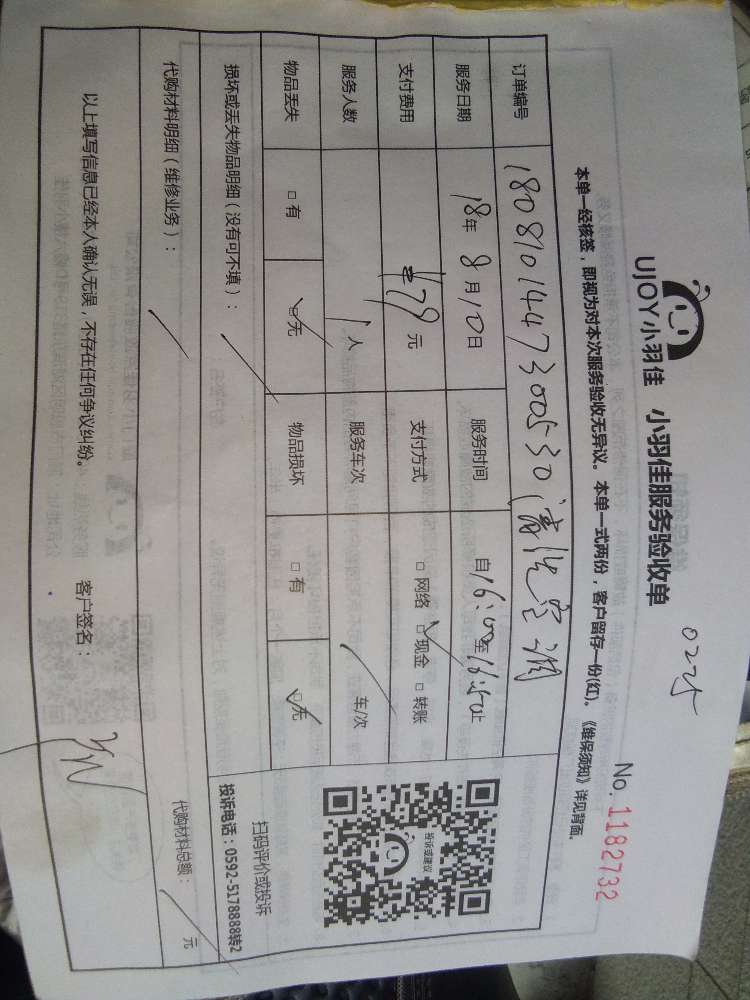 0225
UJOY小羽佳 小羽佳服务验收单
No. 1182732
本单一经核签，即视为对本次服务验收无异议。本单一式两份，客户留存一份(红)。《维保须知》详见背面。
订单编号 180810144730053 0 清洗空调
服务日期 18年 8月10日 服务时间 自16:00至16:50止
支付费用 #79元 支付方式 □网络 □现金 □转账
服务人数 1人 服务车次 车/次
物品丢失 □有 □无 物品损坏 □有 □无
投诉或建议
扫码评价或投诉
投诉电话：0592-5178888转2
损坏或丢失物品明细（没有可不填）：
代购材料明细（维修业务）： 代购材料总额： 元
以上填写信息已经本人确认无误，不存在任何争议纠纷。 客户签名：